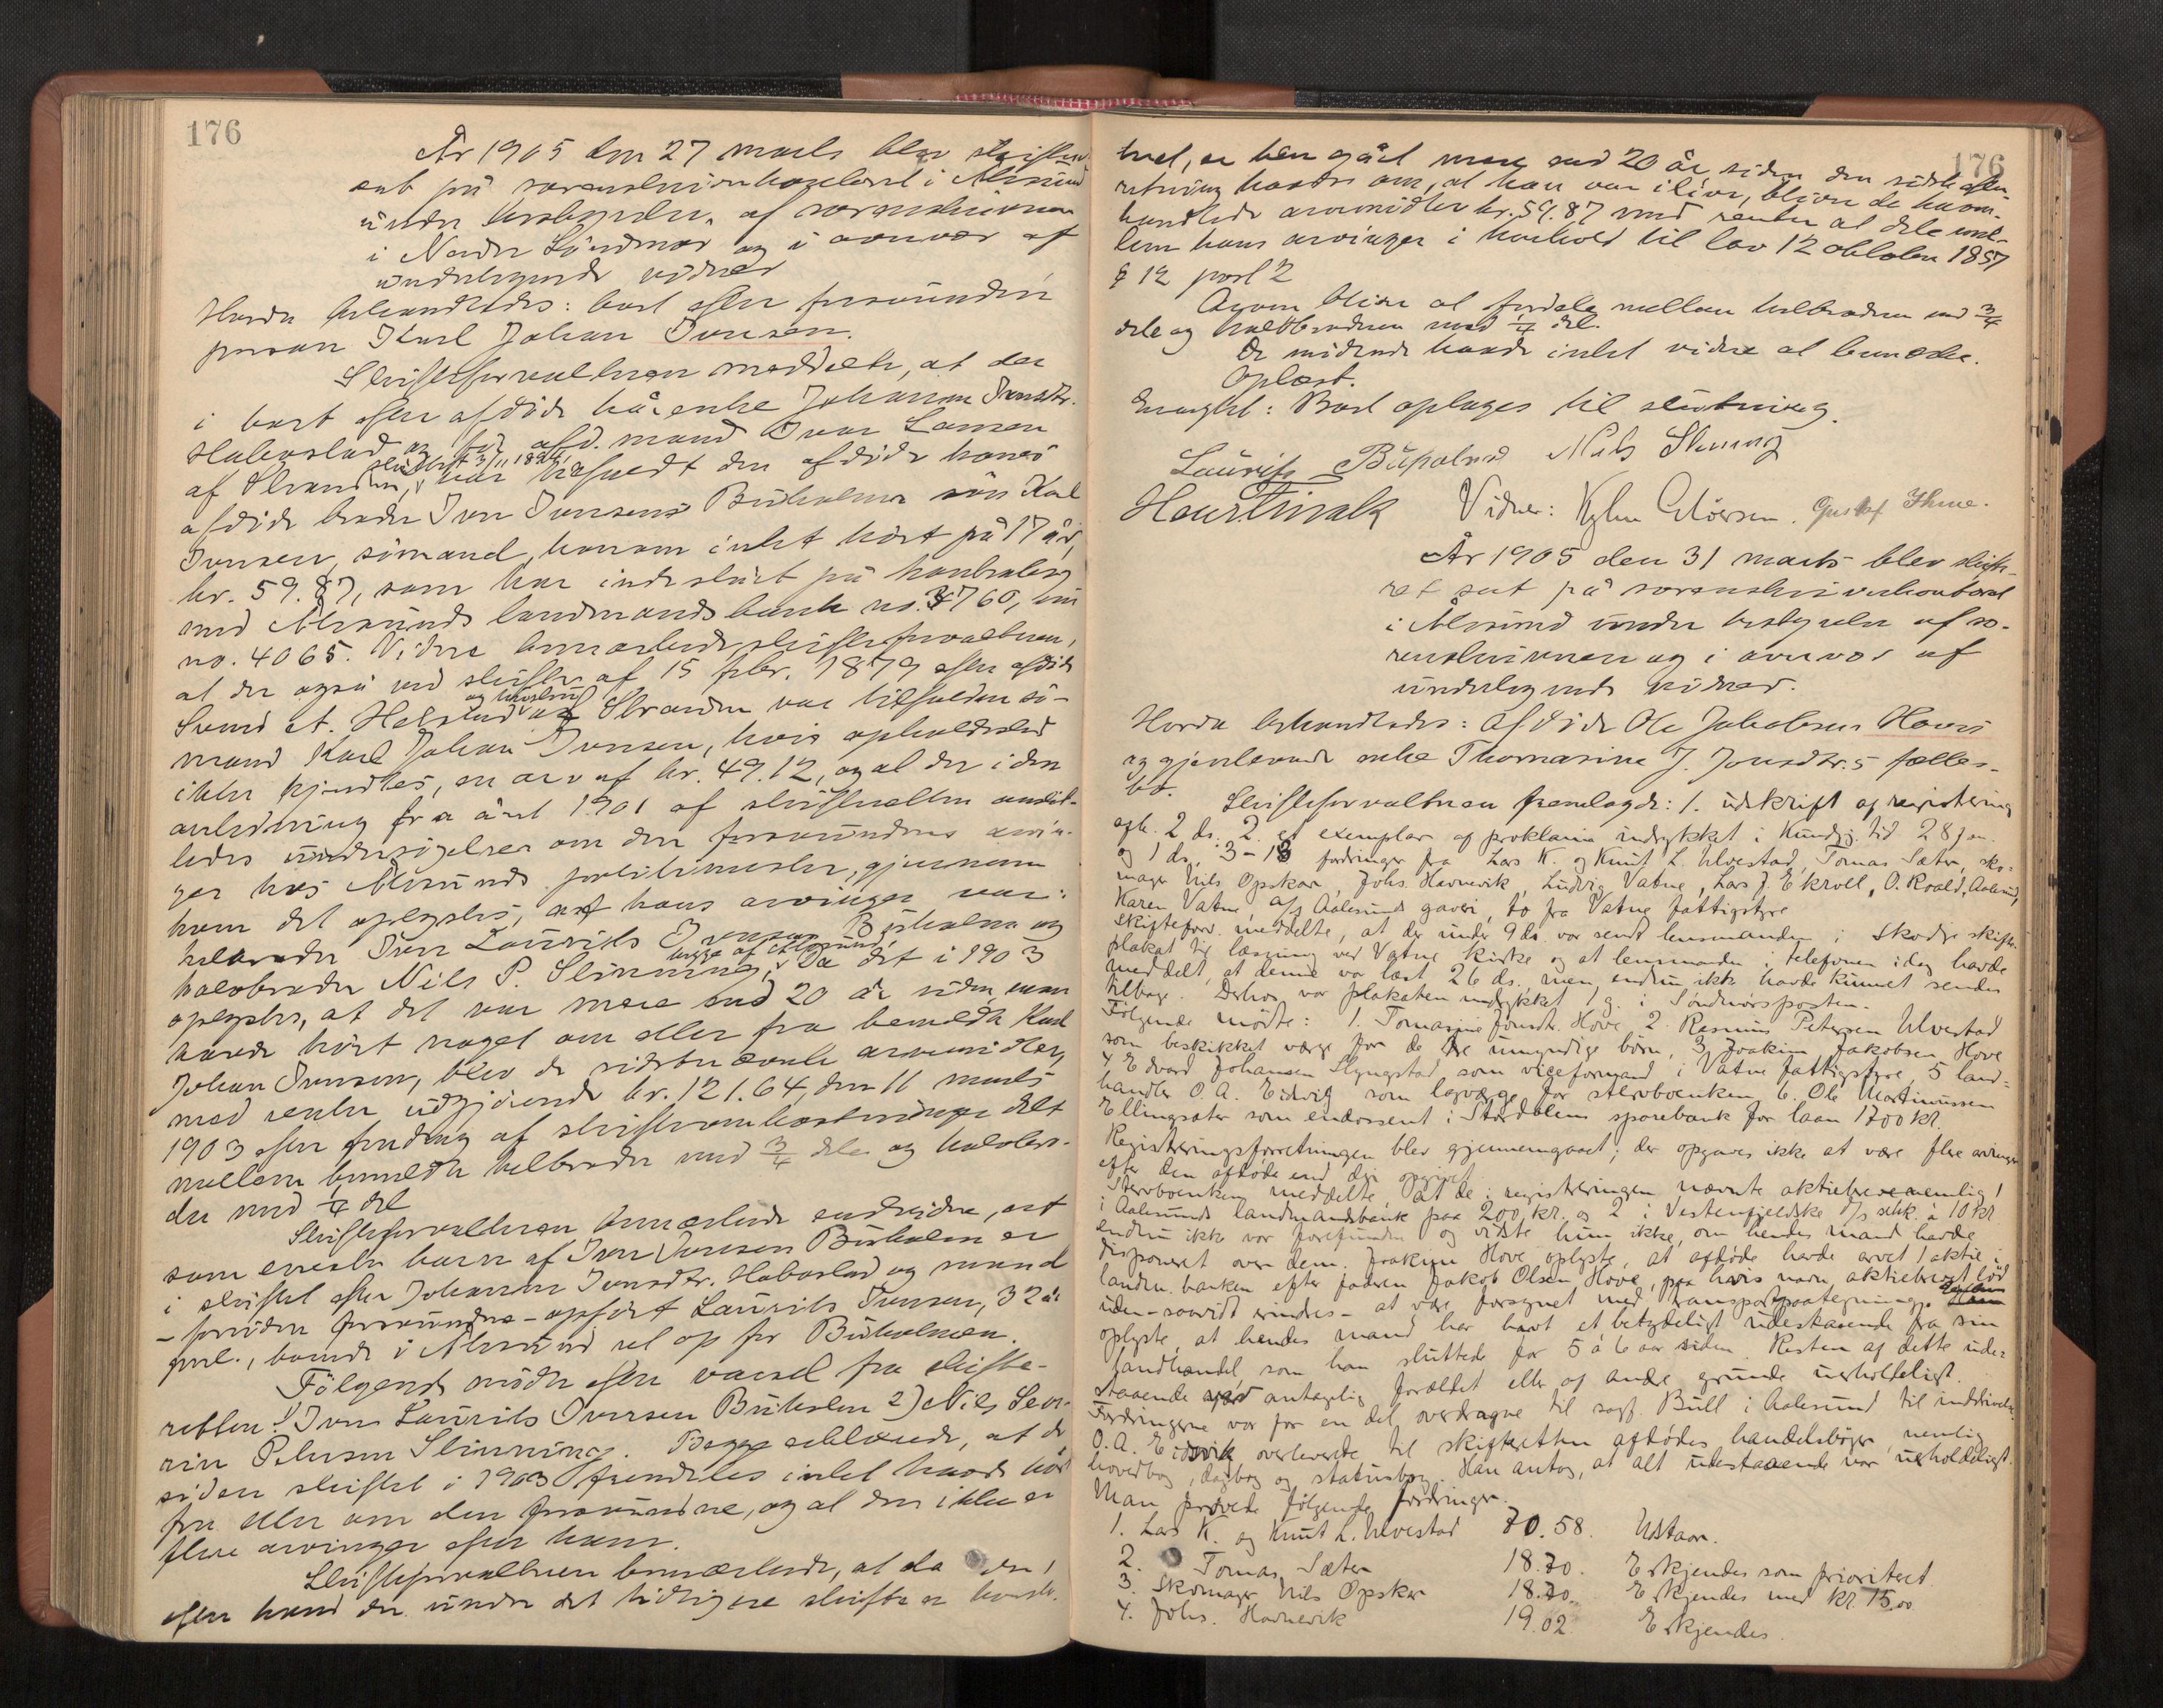 176
År 1905 den 27 marts blev skifteret
sat på sorenskriverkontoret i Ålesund
under bestyrelse af sorenskriveren
i Nordre Söndmör og i overvær af
undertegnede vidner
Hvorda behandledes: bort efter forsvunden
person Karl Johan Iversen.
Skifteforvalteren meddelte, at der
i bort efter afdöde kårenke Johanne Iversdtr.
Habostad og för afd. mand Iver Larsen
af Stranden, sluttet 3/11 1898, har tilfaldt den afdöde hans
afdöde broder Iver Iversens Buholmen sön Karl
Iversen, sömand, hvorom intet hört på 17 år,
kr. 59.87, som har indestået på kontrabog
med Ålesunds landmandsbank no. 3760, nu
no. 4065. Videre bemærkede skifteforvalteren,
at der også ved skifte af 15 febr. 1879 efter afdöde
Svend A. Helstad og hustru af Stranden var tilfalden sö-
mand Karl Johan Iversen, hvis opholdssted
ikke kjendtes, en arv af kr. 49.12, og at der i den
anledning fra året 1901 af skifteretten anstil-
ledes undersögelser om den forsvundnes arvin-
ger hos Ålesunds politimester, gjennem
hvem det oplystes, at hans arvinger var:
helbroder Iver Laurits Iversen Buholmen og
halvbroder Nils P. Slinning, begge af Ålesund. Da det i 1903
oplystes, at det var mere end 20 år siden man
havde hört noget om eller fra bemeldte Karl
Johan Iversen, blev de sidstnævnte arvemidler,
med renter udgjörende kr. 121.64, den 11 marts
1903 efter fradrag af skifteomkostninger delt
mellem bemeldte helbroder med 3/4 dele og halvbro-
der med 1/4 del
Skifteforvalteren bemærkede endvidere, at
som eneste barn af Iver Iversen Buholm er
i skiftet efter Johanne Iversdtr. Habostad og mand
– foruden forsvundne – opfört Laurits Iversen, 32 år
gml., boende i Ålesund vel op for Buholmen.
Fölgende mödte efter varsel fra skifte-
retten: 1) Iver Laurits Iversen Buholm 2) Nils Seve-
rin Petersen Slinning. Begge erklærede, at de
siden skiftet i 1903 fremdeles intet havde hört
fra eller om den forsvundne, og at der ikke er
flere arvinger efter ham.
Skifteforvalteren bemærkede, at da der
efter hvad der under det tidligere skifte er konsta-
176
teret, er hengået mere end 20 år siden den sidste efter-
retning havdes om, at han var ilive, bliver de herom-
handlede arvemidler kr. 59.87 med renter at dele mel-
lem hans arvinger i henhold til lov 12 oktober 1857
§ 12 post 2
Arven bliver at fordele mellem helbroderen med 3/4
dele og halvbroderen med 1/4 del.
De mödende havde intet videre at bemærke.
Oplæst.
Eragtet: Boet optages til slutning.
Laurits Buholm Nils Slinning
Vidner: Gustaf Thue.
År 1905 den 31 marts blev skifte-
ret sat på sorenskriverkontoret
i Ålesund under bestyrelse af so-
renskriveren og i overvær af
undertegnede vidner.
Hvorda behandledes: afdöde Ole Jakobsen Hoves
og gjenlevende enke Thomasine J. Jonsdtr.s fælles-
bo.
Skifteforvalteren fremlagde: 1. udskrift af registrering
afh. 2 ds. 2. et exemplar af proklama indrykket i Kundgj. tid. 28 jan
og 1 ds. 3-13 fordringer fra Lars K. og Knut L. Ulvestad, Tomas Sæter, sko-
mager Nils Opskar, Johs. Havnevik, Ludvig Vatne, Lars J. Ekroll, O. Roald, Aalesund,
Karen Vatne, A/S Aalesunds gaveri, to fra Vatne fattigstyre
Skifteforv. meddelte, at der under 9 ds. var sendt lensmanden i Skodje skifte-
plakat til læsning ved Vatne kirke og at lensmanden i telefonen idag havde
meddelt, at denne var læst 26 ds., men endnu ikke havde kunnet sendes
tilbage. Derhos var plakaten indrykket 1 g. i Söndmörsposten.
Følgende mödte: 1. Tomasine Jonsdtr. Hove 2. Rasmus Petersen Ulvestad
som beskikket værge for de tre umyndige börn, 3. Joakim Jakobsen Hove
4 Edvard Johansen Slyngstad som viceformand i Vatne fattigstyre, 5 land-
handler O. A. Eidsvik som lagværge for stervboenken 6. Ole Martinussen
Ellingsæter som endossent i Stordalens sparebank for laan 1700 kr.
Registreringsforretningen blev gjennemgaaet; der opgaves ikke at være flere arvinger
efter den afdøde end der opgivet.
Stervboenken meddelte, at de i registreringen nævnte aktiebreve nemlig 1
i Aalesunds landmandsbank paa 200 kr. og 2 i Vestenfjeldske A/S selsk. à 10 kr.
endnu ikke var forefundne og vidste hun ikke, om hendes mand havde
disponeret over dem. Joakim Hove oplyste, at afdøde havde arvet 1 aktie i
landm. banken efter faderen Jakob Olsen Hove, paa hvis navn aktiebrevet lød
uden – saavidt erindres – at være forsynet med transportpaategning. Enken
oplyste, at hendes mand har havt et betydeligt udestaaende fra sin
landhandel, som han sluttede for 5 à 6 aar siden. Resten af dette ude-
staaende var antagelig forældet eller af andre grunde uerholdeligt.
Fordringerne var for en del overdragne til sagf. Bull i Aalesund til inddrivelse.
O. A. Eidsvik overleverte til skifteretten afdødes handelsbøger, nemlig
hovedbog, dagbog og statusbog. Han antog, at alt udestaaende var uerholdeligt.
Man prøvede følgende fordringer.
1. Lars K. og Knut L. Ulvestad 70.58. Udstaar.
2. Tomas Sæter 18.70. Erkjendes som prioritert.
3. Skomager Nils Opskar 18.70. Erkjendes med kr. 15.00
4. Johs. Havnevik 19.02. Erkjendes.